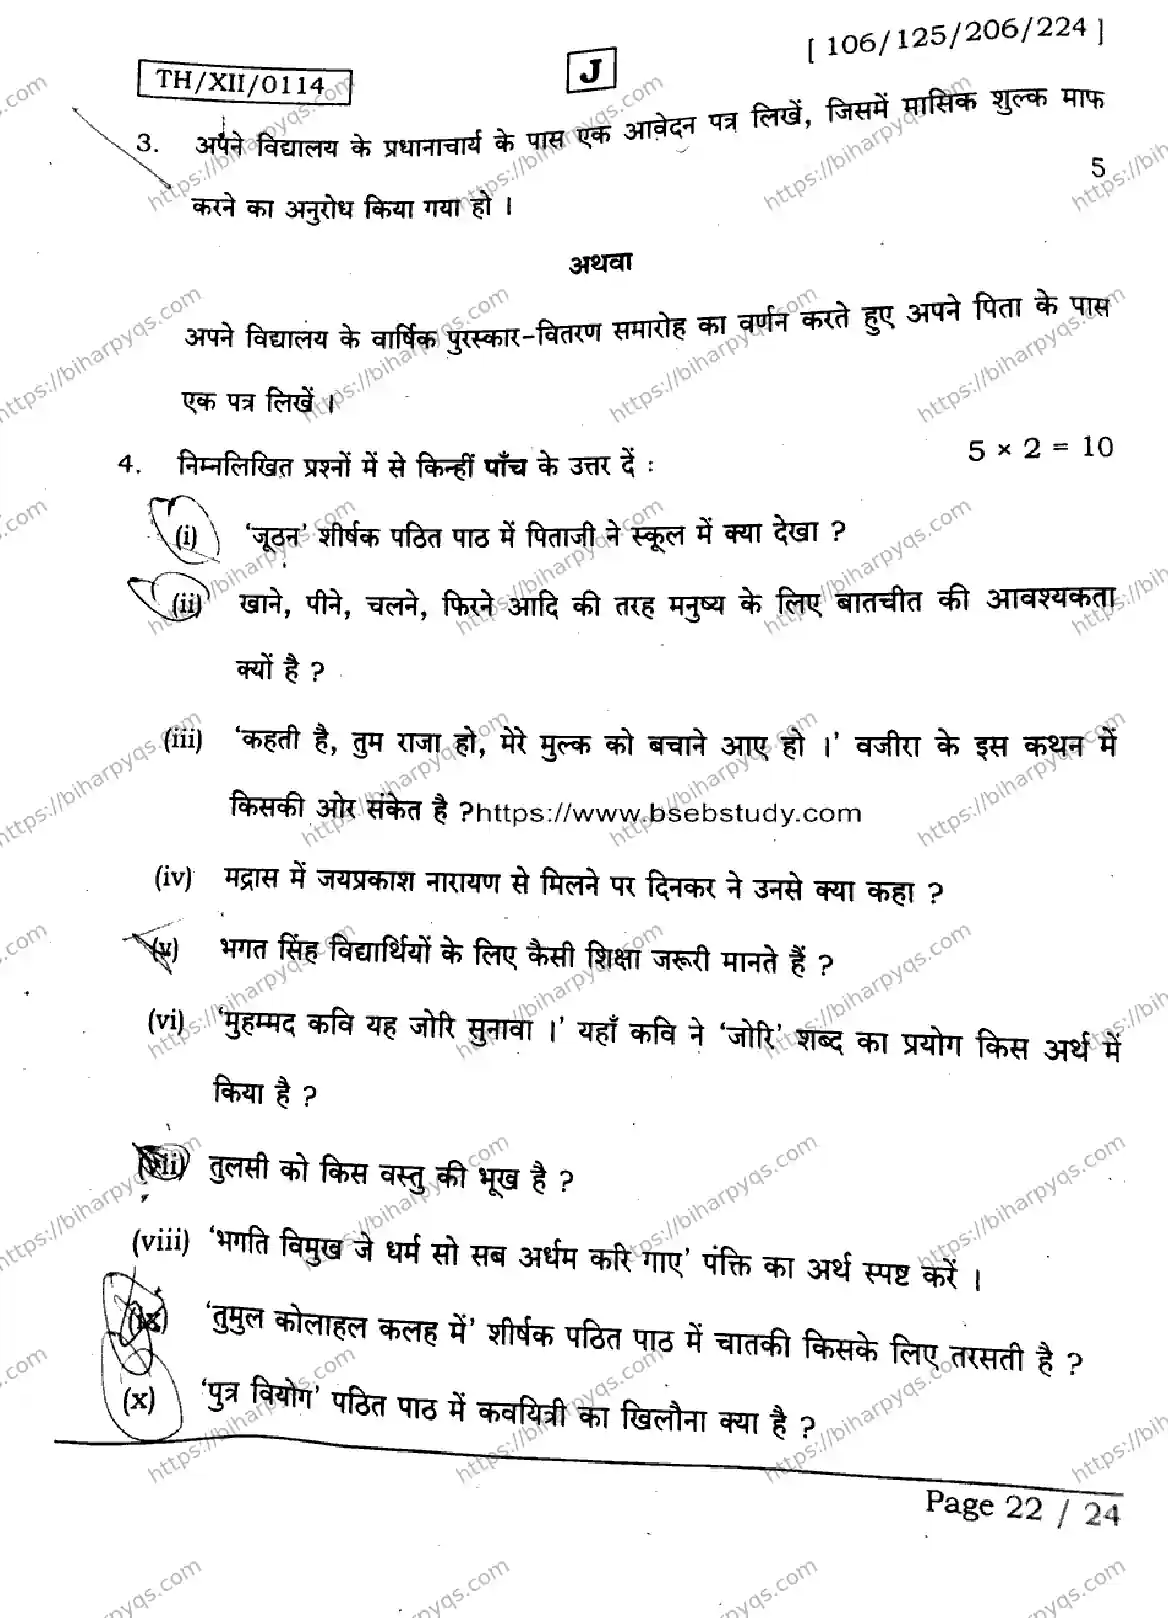 [ 106/125/206/224 ]
TH/XII/0114
J
3. अपने विद्यालय के प्रधानाचार्य के पास एक आवेदन पत्र लिखें, जिसमें मासिक शुल्क माफ
करने का अनुरोध किया गया हो । 5
अथवा
अपने विद्यालय के वार्षिक पुरस्कार-वितरण समारोह का वर्णन करते हुए अपने पिता के पास
एक पत्र लिखें ।
4. निम्नलिखित प्रश्नों में से किन्हीं पाँच के उत्तर दें : 5 × 2 = 10
(i) 'जूठन' शीर्षक पठित पाठ में पिताजी ने स्कूल में क्या देखा ?
(ii) खाने, पीने, चलने, फिरने आदि की तरह मनुष्य के लिए बातचीत की आवश्यकता
क्यों है ?
(iii) 'कहती है, तुम राजा हो, मेरे मुल्क को बचाने आए हो ।' वजीरा के इस कथन में
किसकी ओर संकेत है ?https://www.bsebstudy.com
(iv) मद्रास में जयप्रकाश नारायण से मिलने पर दिनकर ने उनसे क्या कहा ?
(v) भगत सिंह विद्यार्थियों के लिए कैसी शिक्षा जरूरी मानते हैं ?
(vi) 'मुहम्मद कवि यह जोरि सुनावा ।' यहाँ कवि ने 'जोरि' शब्द का प्रयोग किस अर्थ में
किया है ?
(vii) तुलसी को किस वस्तु की भूख है ?
(viii) 'भगति विमुख जे धर्म सो सब अर्धम करि गाए' पंक्ति का अर्थ स्पष्ट करें ।
(ix) 'तुमुल कोलाहल कलह में' शीर्षक पठित पाठ में चातकी किसके लिए तरसती है ?
(x) 'पुत्र वियोग' पठित पाठ में कवयित्री का खिलौना क्या है ?
Page 22 / 24
https://biharpyqs.com